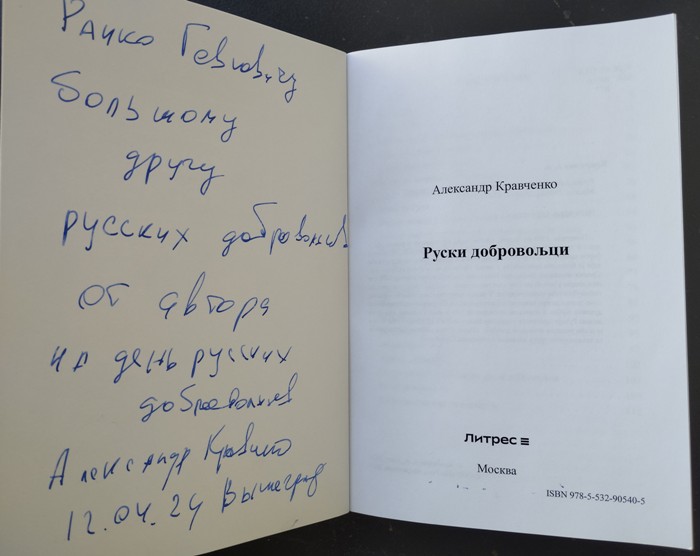 Ранко Гевговичу
большому
другу
русских добровольцев
от автора
на день русских
добровольцев
Александр Кравченко
12.04.24 Вышеград
Александр Кравченко
Руски добровољци
Литрес
Москва
ISBN 978-5-532-90540-5